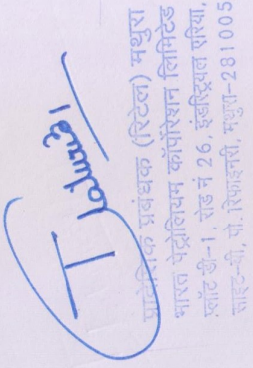 प्रादेशिक प्रबंधक (रिटेल) मथुरा
भारत पेट्रोलियम कॉर्पोरेशन लिमिटेड
प्लॉट डी-1, रोड नं 26, इंडस्ट्रियल एरिया,
साइट-बी, पो. रिफाइनरी, मथुरा-281005